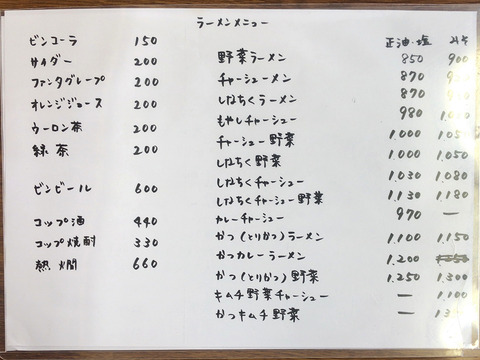 ラーメンメニュー
ビンコーラ 150
サイダー 200
ファンタグレープ 200
オレンジジュース 200
ウーロン茶 200
緑茶 200
ビンビール 600
コップ酒 440
コップ焼酎 330
熱燗 660
正油・塩 みそ
野菜ラーメン 850 900
チャーシューメン 870
しなちくラーメン 870
もやしチャーシュー 980
チャーシュー野菜 1.000
しなちく野菜 1.000 1.050
しなちくチャーシュー 1.030 1.080
しなちくチャーシュー野菜 1.130 1.180
カレーチャーシュー 970 ー
かつ(とりかつ)ラーメン 1.100 1.150
かつカレーラーメン 1.200
かつ(とりかつ)野菜 1.250 1.300
キムチ野菜チャーシュー ー 1.100
かつキムチ野菜 ー